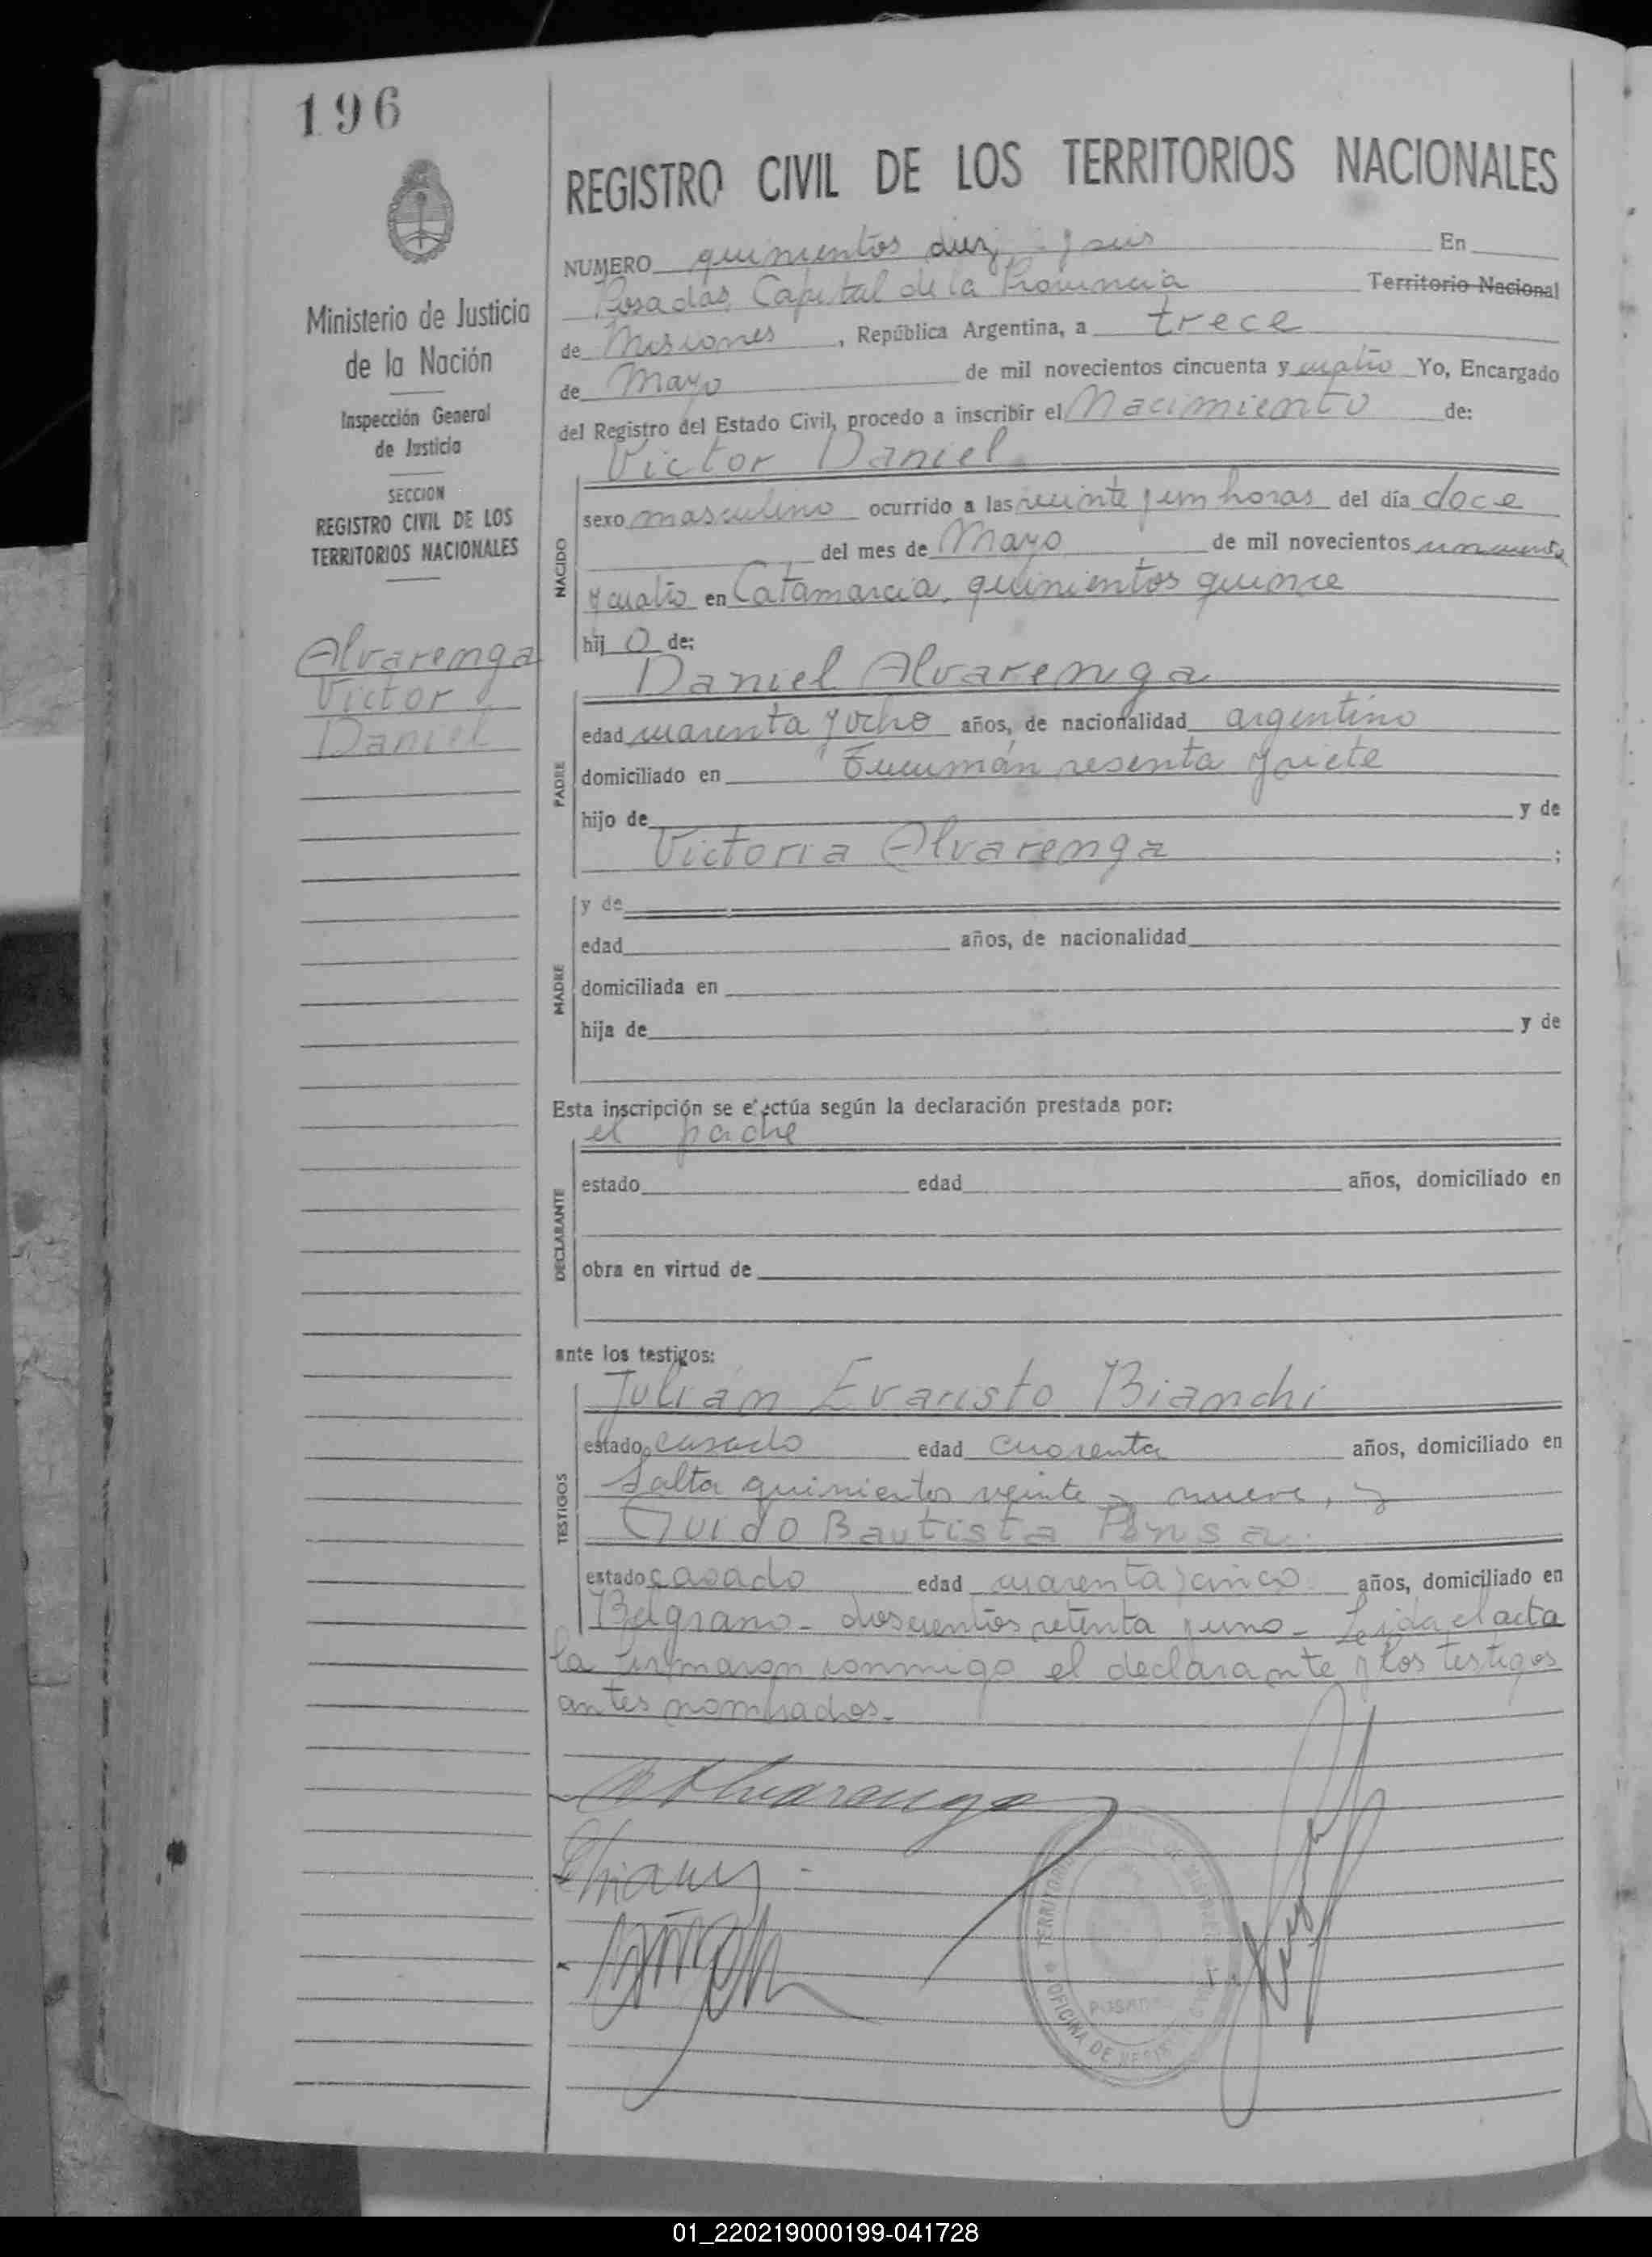 196
REGISTRO CIVIL DE LOS TERRITORIOS NACIONALES
Ministerio de Justicia
de la Nación
Inspección General
de Justicia
SECCION
REGISTRO CIVIL DE LOS
TERRITORIOS NACIONALES
Alvarenga
Victor
Daniel
NUMERO quinientos diez y seis En
Posadas, Capital de la Provincia Territorio Nacional
de Misiones, República Argentina, a trece
de Mayo de mil novecientos cincuenta y cuatro Yo, Encargado
del Registro del Estado Civil, procedo a inscribir el Nacimiento de:
Victor Daniel
NACIDO
sexo masculino ocurrido a las veinte y un horas del día doce
del mes de Mayo de mil novecientos cincuenta
y cuatro en Catamarca, quinientos quince
hijo de:
Daniel Alvarenga
PADRE
edad cuarenta y ocho años, de nacionalidad argentino
domiciliado en Tucumán sesenta y siete
hijo de y de
Victoria Alvarenga ;
MADRE
y de
edad años, de nacionalidad
domiciliada en
hija de y de
Esta inscripción se efectúa según la declaración prestada por:
el padre
DECLARANTE
estado edad años, domiciliado en
obra en virtud de
ante los testigos:
Julián Evaristo Bianchi
TESTIGOS
estado casado edad cuarenta años, domiciliado en
Salta quinientos veinte y nueve, y
Guido Bautista
estado casado edad cuarenta y cinco años, domiciliado en
Belgrano - doscientos setenta y uno - Leida el acta
la firmaron conmigo el declarante y los testigos
antes nombrados.-
Alvarenga
POSADAS
OFICINA DE
01_220219000199-041728